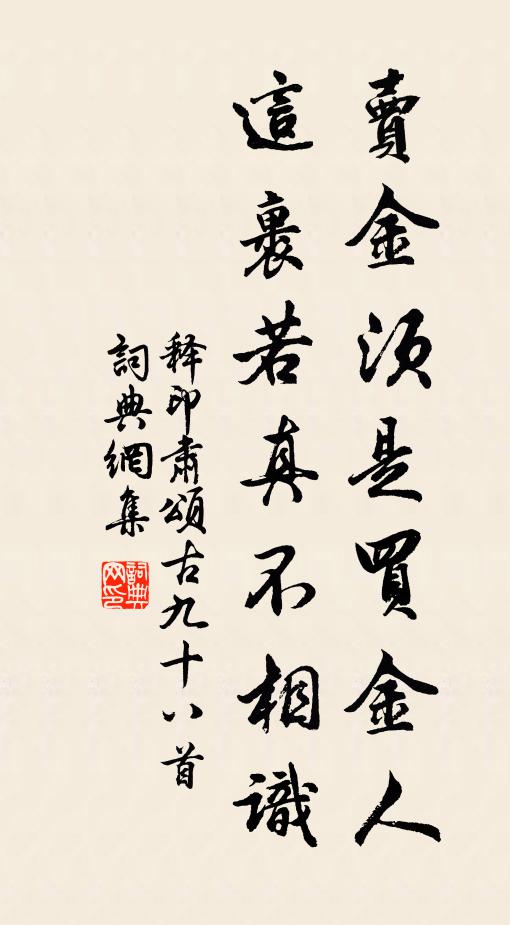 賣金須是買金人
這裏若真不相識
释印肅頌古九十八首
詞典網集
詞典网印